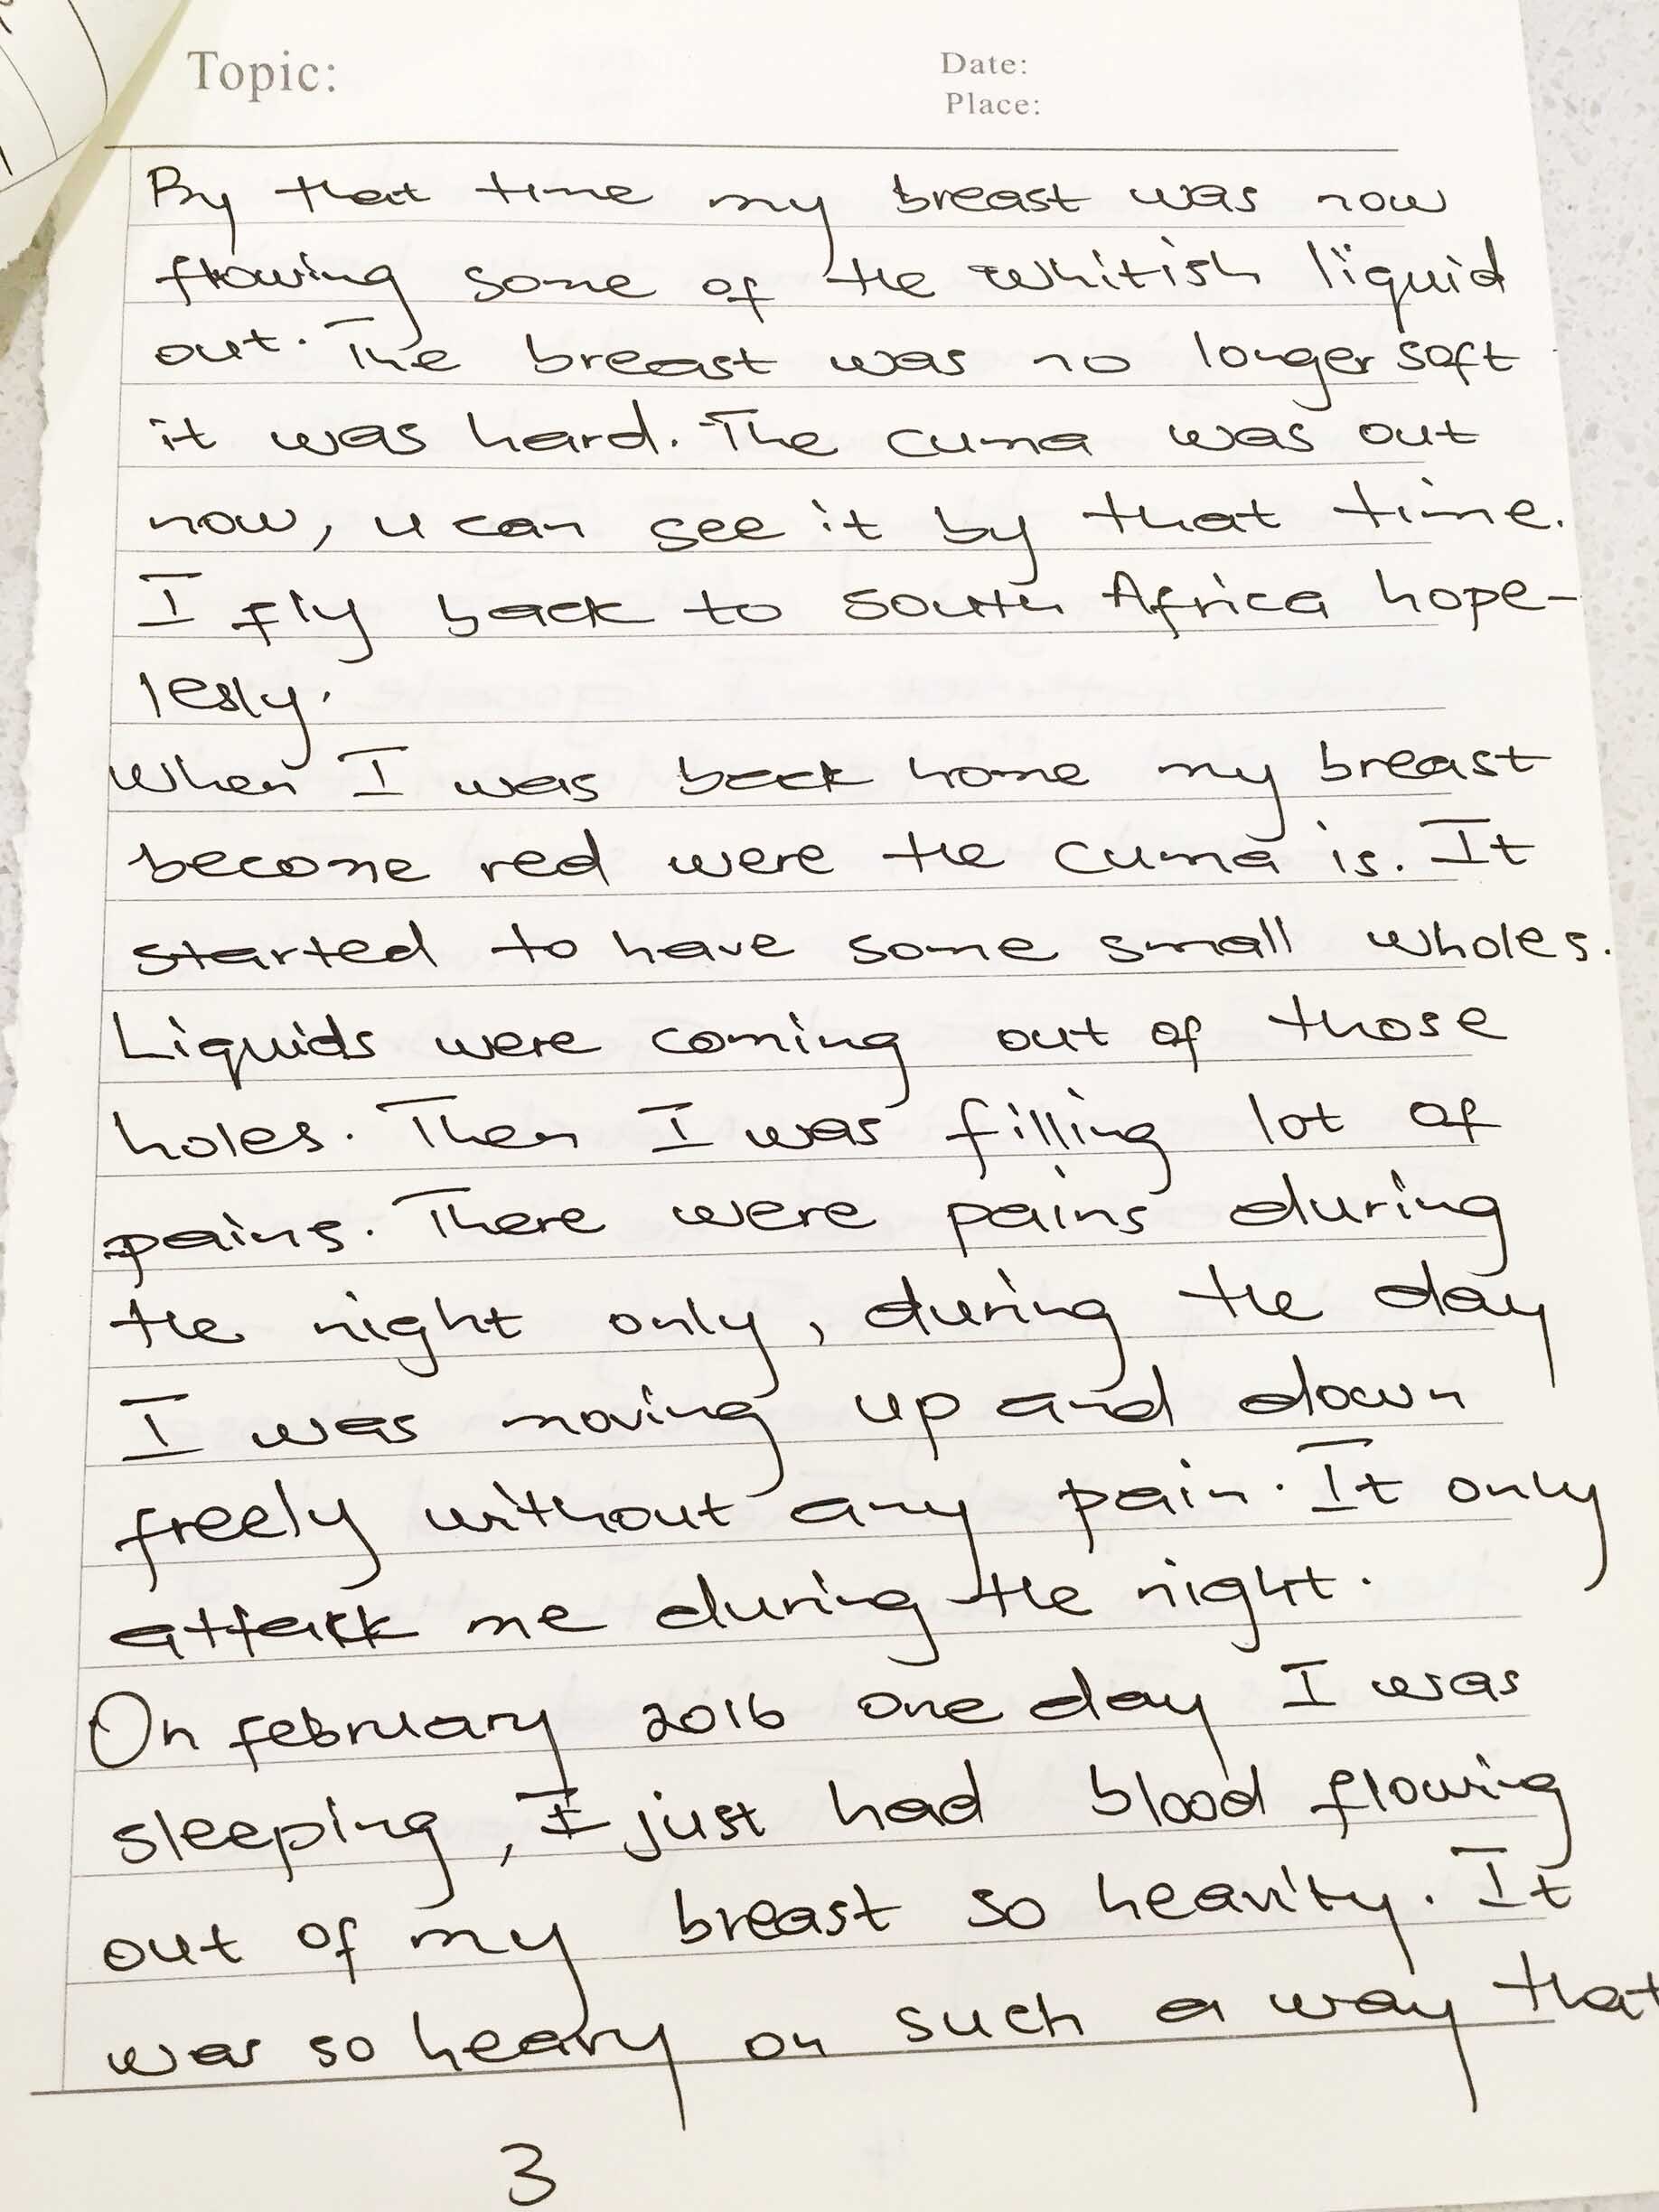 Topic:
Date:
Place:
By that time my breast was now
flowing some of the whitish liquid
out. The breast was no longer soft
it was hard. The cuma was out
now, u can see it by that time.
I fly back to south Africa hope-
lessly.
When I was back home my breast
become red were the cuma is. It
started to have some small wholes.
Liquids were coming out of those
holes. Then I was filling lot of
pains. There were pains during
the night only, during the day
I was moving up and down
freely without any pain. It only
attack me during the night.
On february 2016 one day I was
sleeping, I just had blood flowing
out of my breast so heavity. It
was so heavy on such a way that
3